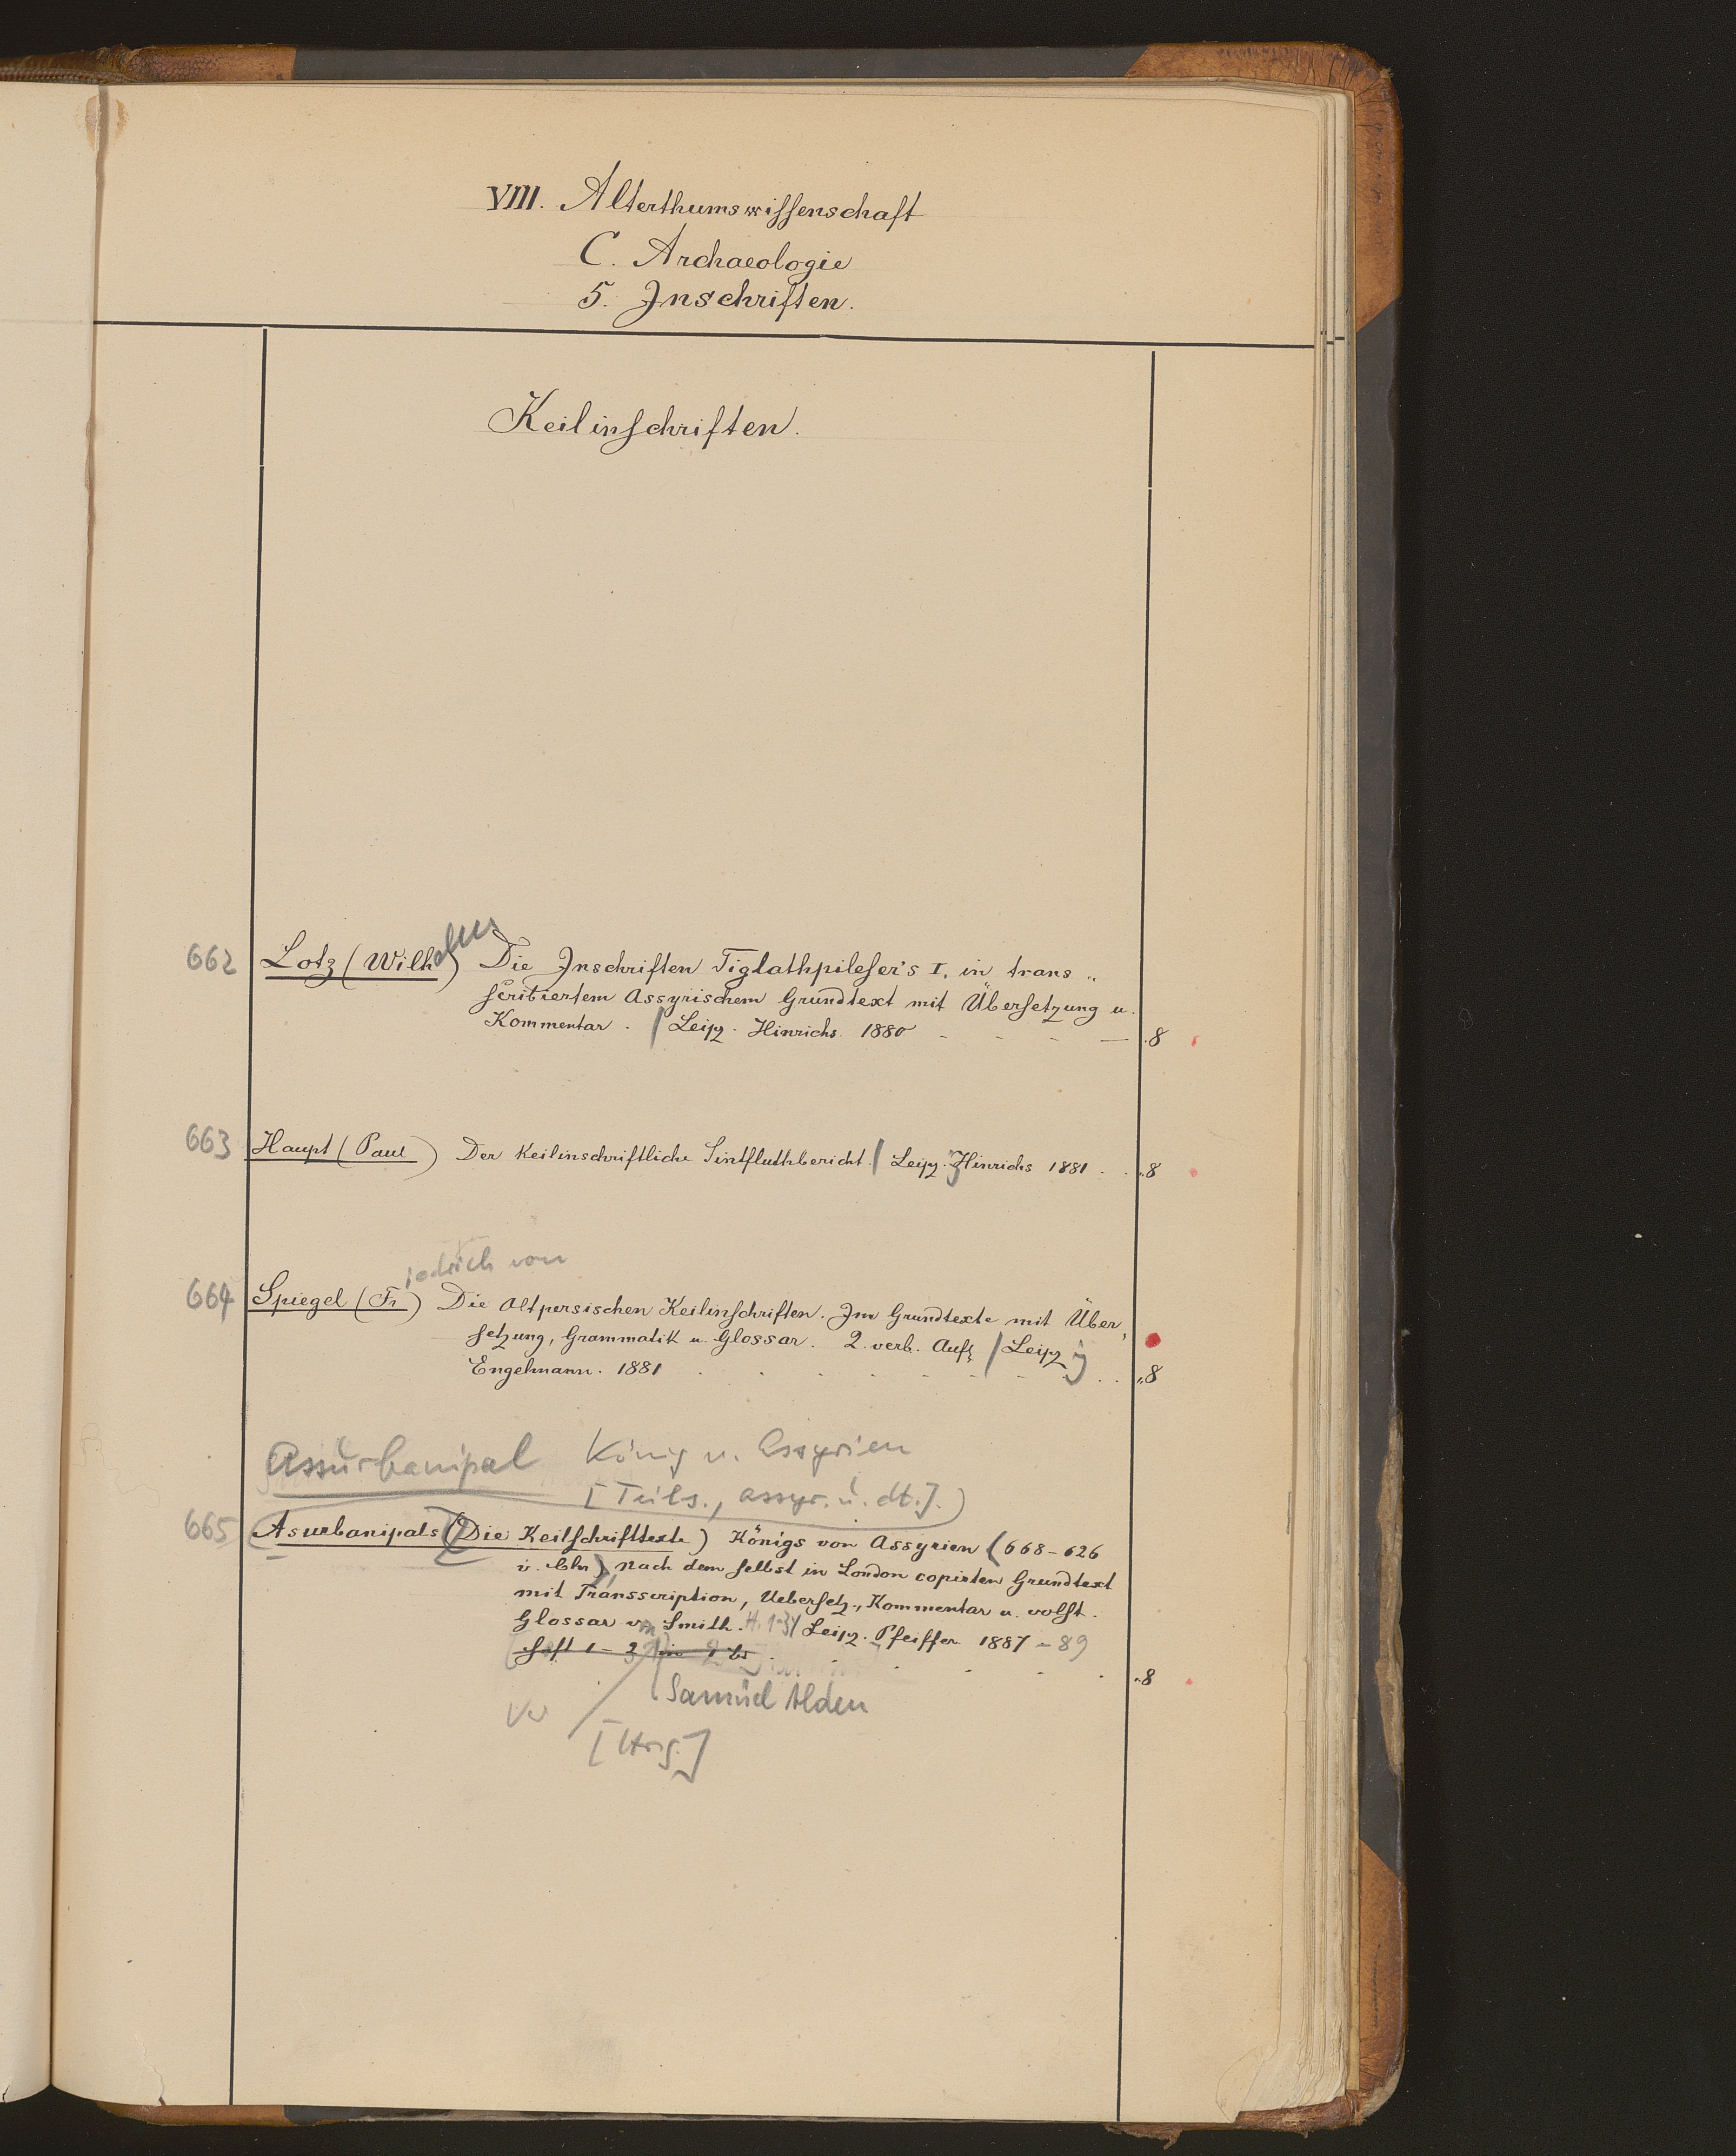 VIII. Alterthumswissenschaft
C. Archaeologie
5. Inschriften.
Keilinschriften.
662 Lotz (Wilhelm) Die Inschriften Tiglathpileser's I. in trans„
scribiertem Assyrischem Grundtext mit Übersetzung u.
Kommentar. / Leipz. Hinrichs. 1880 - - - — .8
663 Haupt (Paul) Der Keilinschriftliche Sintfluthbericht. / Leipz. Hinrichs 1881 . . „8
iedrich von
664 Spiegel (Fr.) Die altpersischen Keilinschriften. Im Grundtexte mit Über„
setzung, Grammatik u. Glossar. 2. verb. Aufl. / Leipzig
Engelmann. 1881 . . . . . . . . „8
Assurbanipal König v. Assyrien
[Teils., assyr. u. dt.].)
665 Asurbanipals (Die Keilschrifttexte) Königs von Assyrien (668-626
v. Chr.), nach dem selbst in London copirten Grundtext
mit Transscription, Uebersetz., Kommentar u. vollst.
Glossar von Smith. H. 1-3 / Leipz. Pfeiffer. 1887-89
Heft 1-3 in 1 Bd . . . . . „8
Samuel Alden
[Hrsg.]